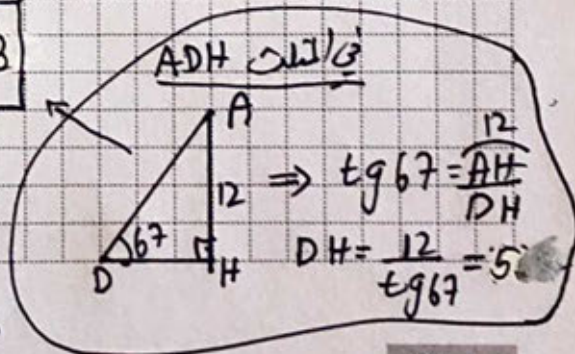 3
في المثلث ADH
A
12
67
D
H
⇒ tg 67 = AH/DH
12
DH = 12/tg67 = 5